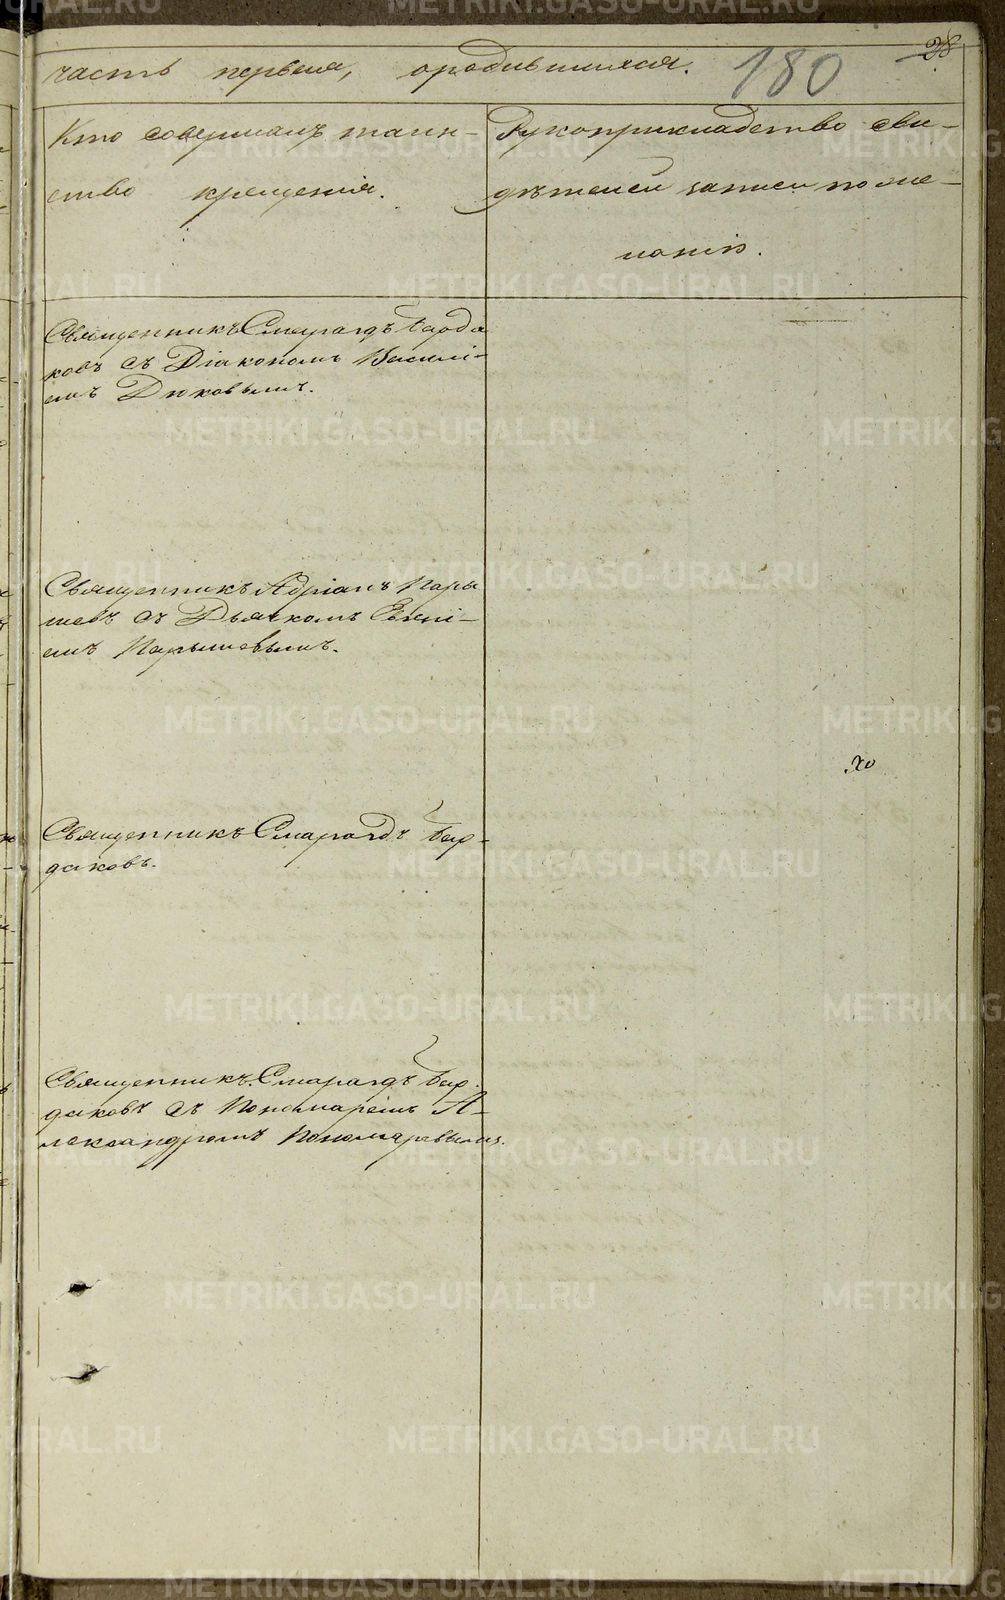 28
180
часть первая, о родившихся.
Кто совершалъ таин-
ство крещенія.
Рукоприкладство сви-
дѣтелей записи по же-
ланію.
Священникъ Смарагдъ Барда
ковъ съ Діакономъ Василі-
емъ Дюковымъ.
Священникъ Адріанъ Пары
шевъ съ Дьячкомъ Евгені-
емъ Парышевымъ.
Священникъ Смарагдъ Бар-
даковъ.
Священникъ Смарагдъ Бар-
даковъ съ Пономаремъ А-
лександромъ Пономаревымъ.
METRIKI.GASO-URAL.RU